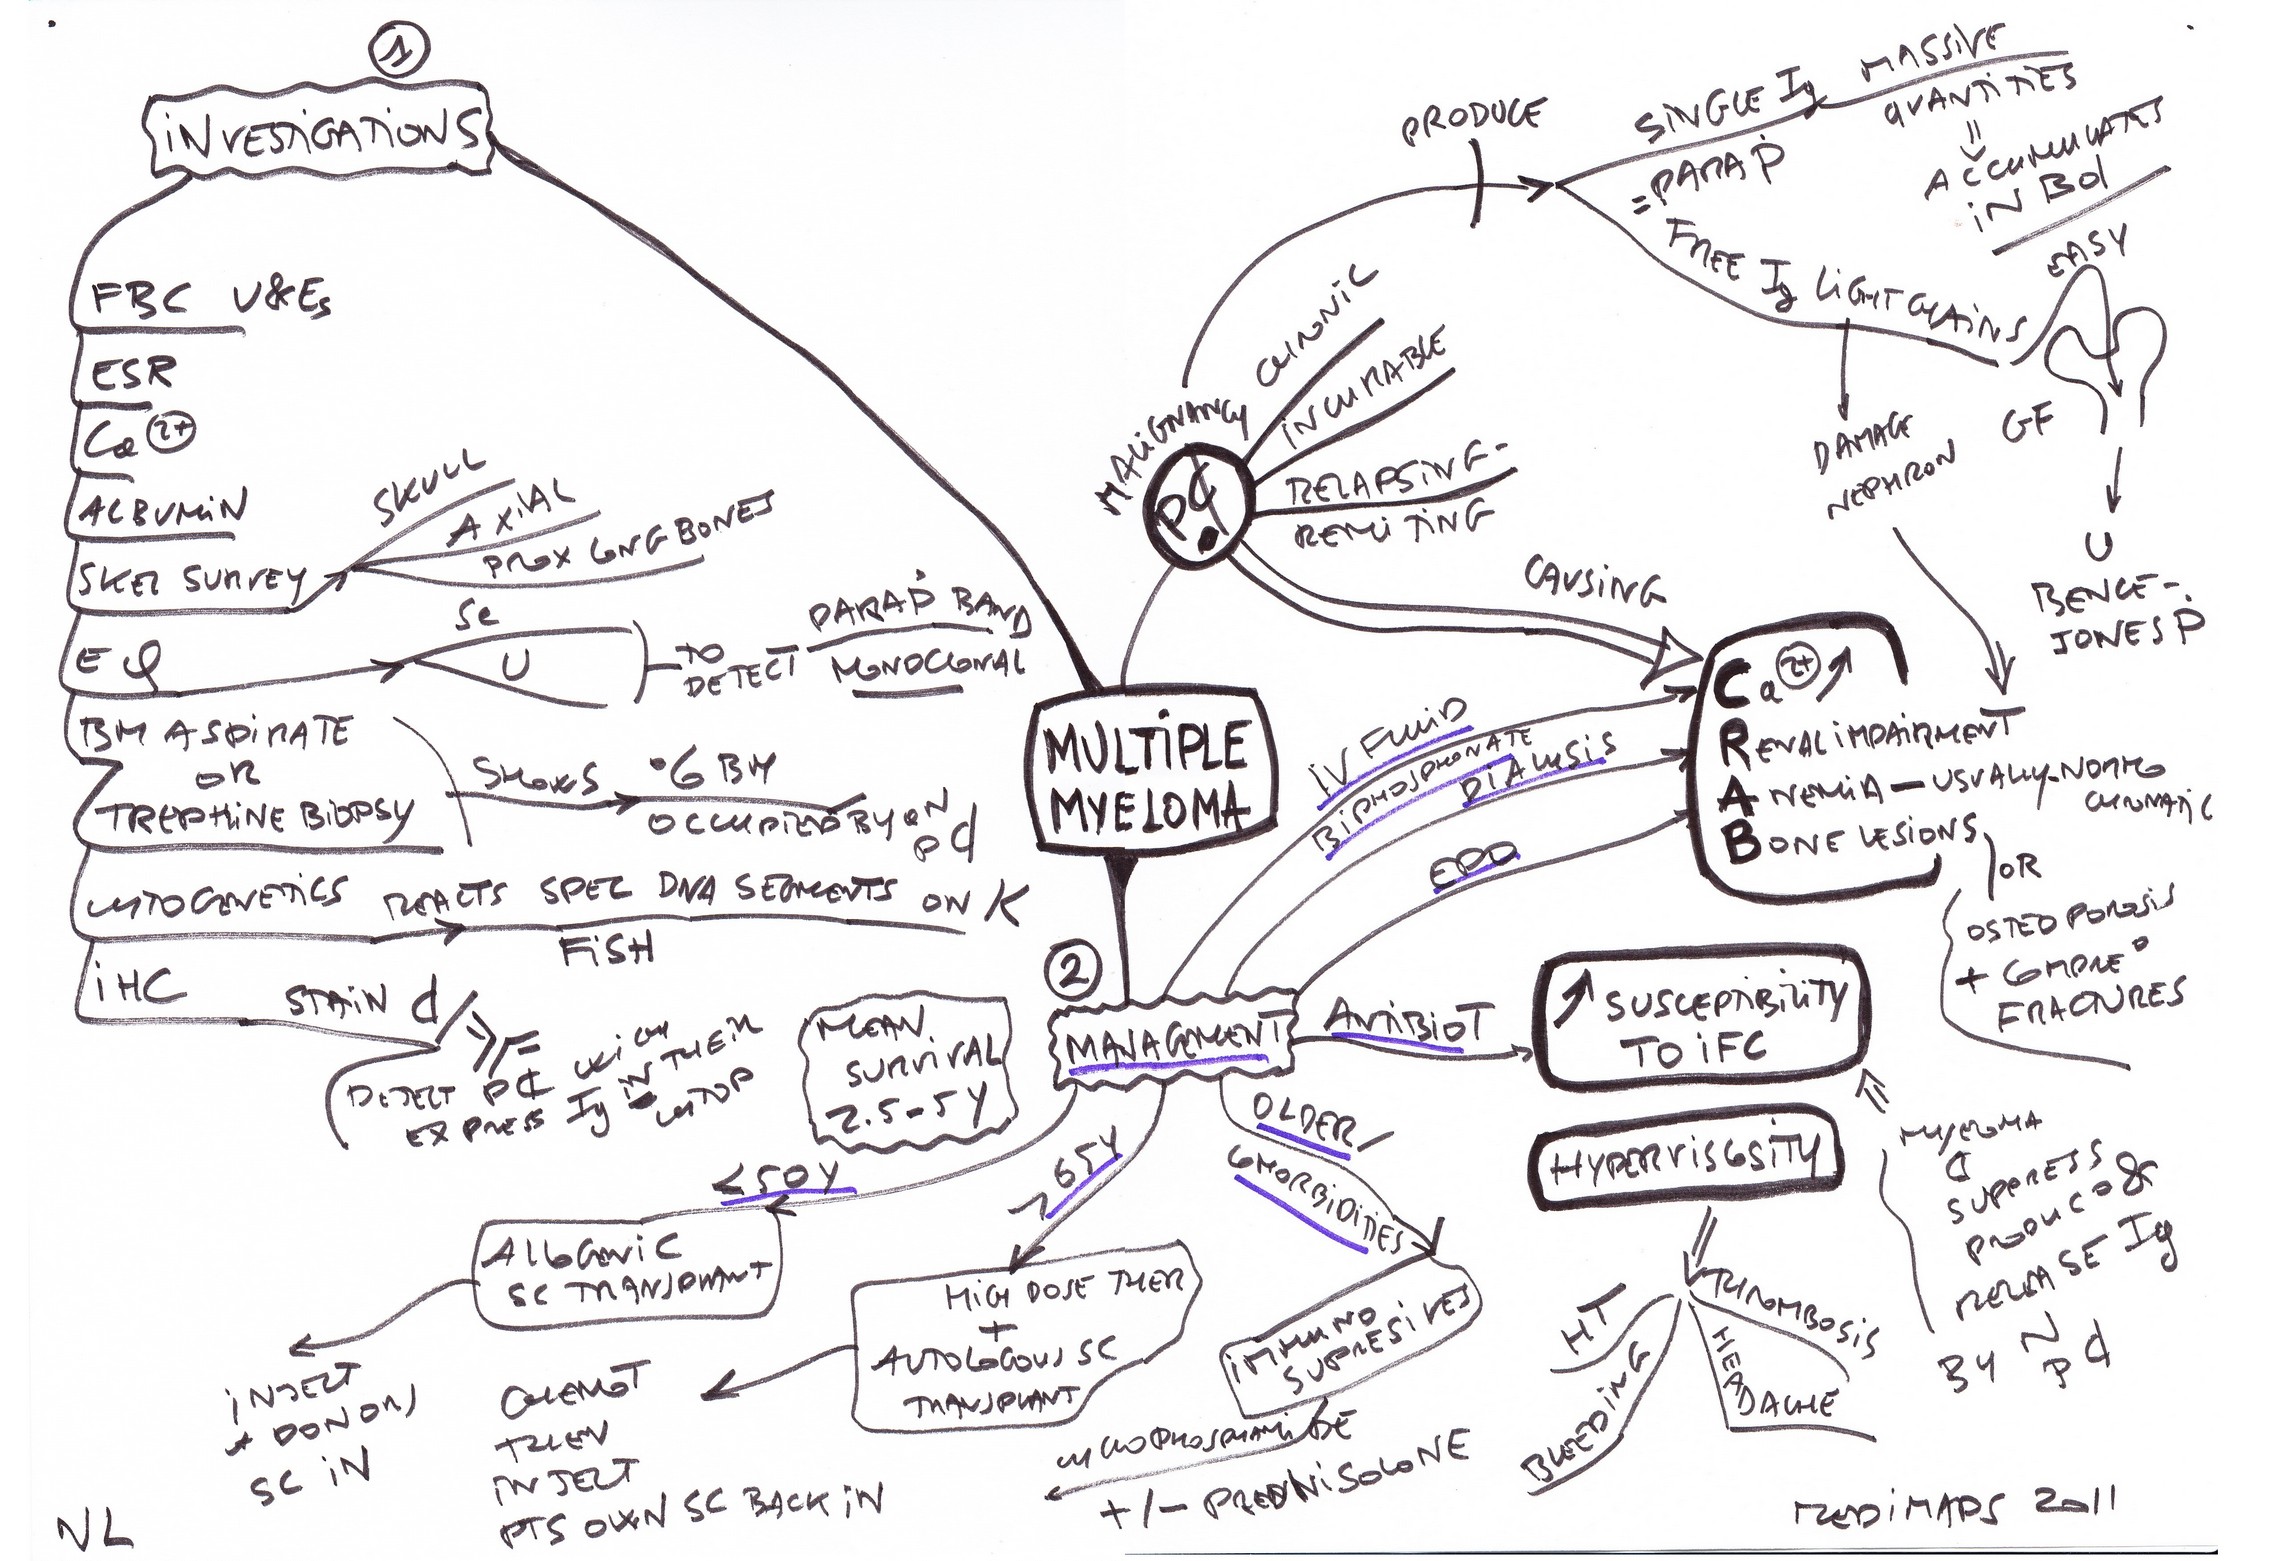 1
INVESTIGATIONS
FBC U&Es
ESR
Ca 2+
ALBUMIN
SKEL SURVEY
SKULL
AXIAL
PROX LONG BONES
Eφ
Se
U
TO
DETECT
PARAṖ BAND
MONOCLONAL
BM ASPIRATE
OR
TREPHINE BIOPSY
SHOWS
BM
OCCUPIED BY
CYTOGENETICS
SPEC DNA SEGMENTS
FISH
IHC
STAIN
DETECT
EXPRESS Ig IN THEIR
CYTOP
MULTIPLE
MYELOMA
MALIGNANCY
PC
CHRONIC
INCURABLE
RELAPSING-
REMITING
PRODUCE
SINGLE Ig
= PARAṖ
MASSIVE
QUANTITIES
ACCUMULATES
IN Bd
FREE Ig LIGHT CHAINS
EASY
GF
DAMAGE
NEPHRON
U
BENCE-
JONES Ṗ
CAUSING
Ca 2+
RENAL IMPAIRMENT
ANEMIA - USUALLY NORMO
CHROMATIC
BONE LESIONS
OR
OSTEOPOROSIS
+ COMPRE°
FRACTURES
IV FLUID
BIPHOSPHONATE
DIALYSIS
EPO
2
MANAGEMENT
ANTIBIOT
SUSCEPTIBILITY
TO IFC
MYELOMA
SUPPRESS
PRODUC° &
RELEASE Ig
BY N
HYPERVISCOSITY
HT
BLEEDING
HEADACHE
THROMBOSIS
MEAN
SURVIVAL
2.5-5Y
<50Y
ALLOGENIC
SC TRANSPLANT
INJECT
DONORS
SC IN
>65Y
HIGH DOSE THER
+
AUTOLOGOUS SC
TRANSPLANT
CHEMOT
THEN
INJECT
PTS OWN SC BACK IN
OLDER/
COMORBIDITIES
IMMUNO
SUPRESIVES
CYCLOPHOSPHAMIDE
+/- PREDNISOLONE
NL
MEDIMAPS 2011